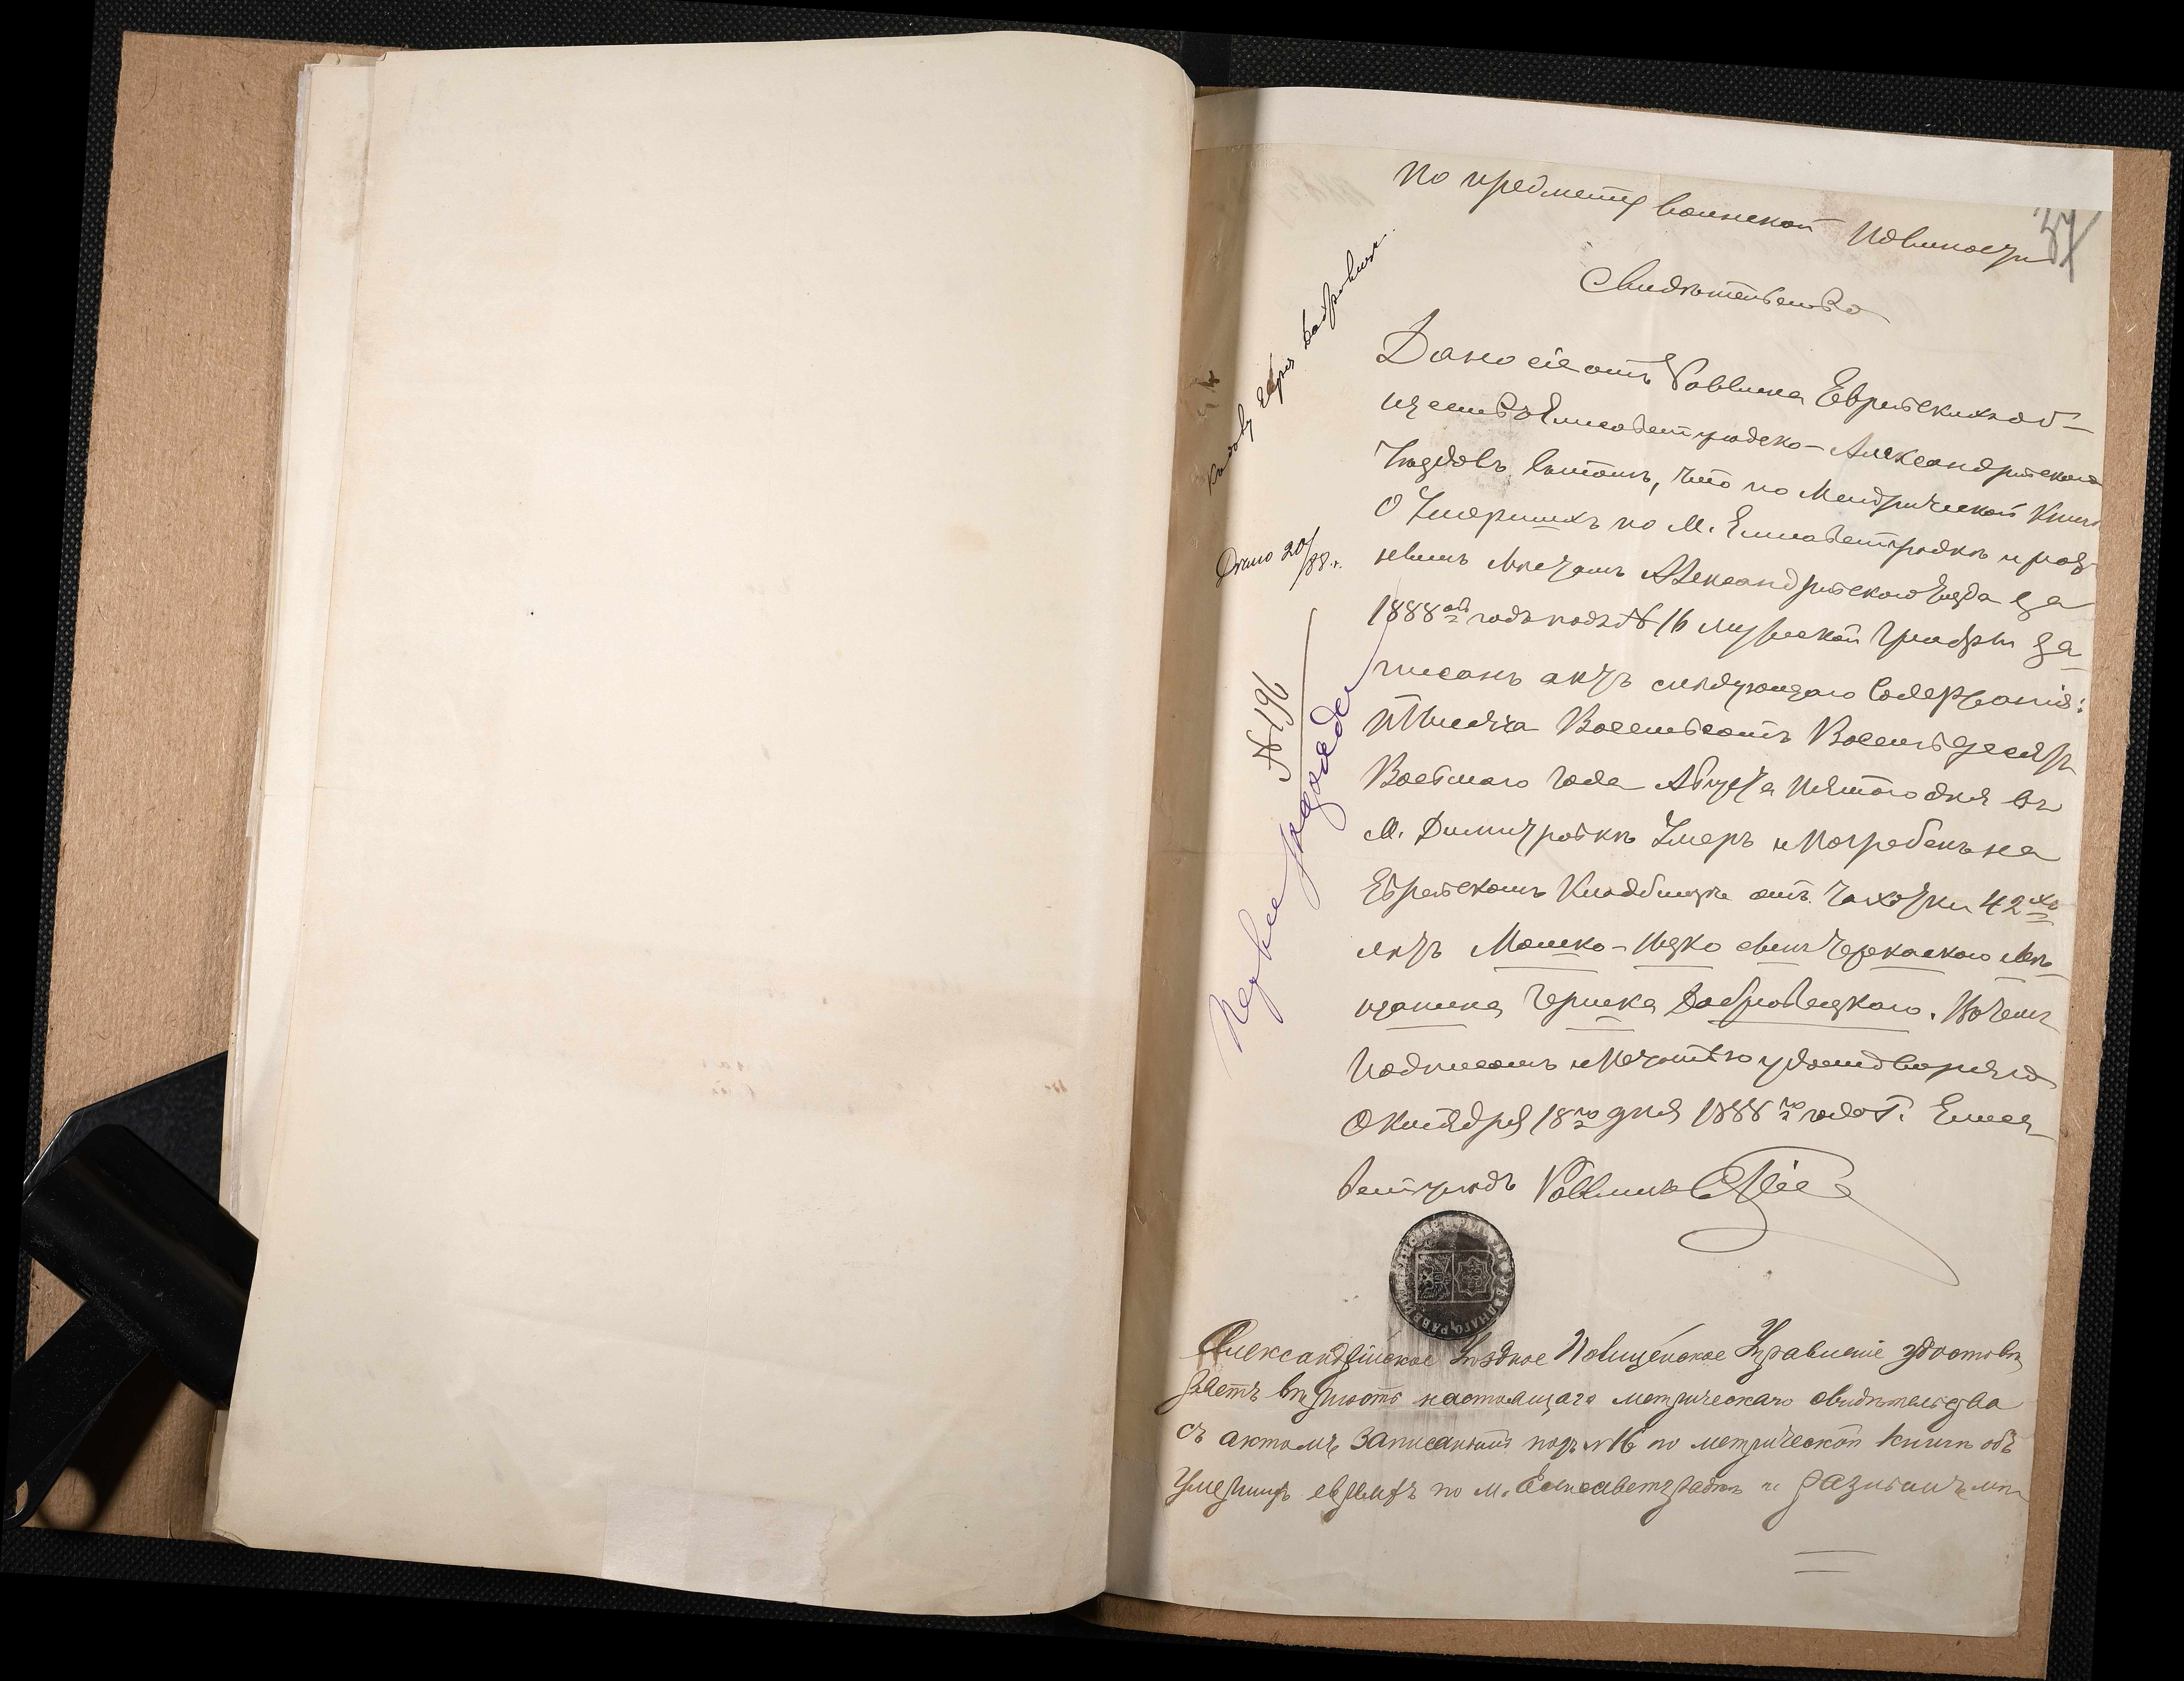 По предмету воинской повиности
37
Свидѣтельство
Дано сіе отъ Раввина Еврейскихъ об-
ществъ Елисаветградско-Александрійскаго
Уѣздовъ въ томъ, что по Метрической Книгѣ
о Умершихъ по М. Елисаветградкѣ и раз-
нымъ мѣстамъ Александрійскаго уѣзда за
1888ой годъ подъ № 16 мужской графы за-
писанъ актъ слѣдующаго содержанія:
Тысяча Восемьсотъ Восемьдесятъ
Восьмаго года Августа Пятого дня въ
М. Димитровкѣ Умеръ и Погребенъ на
Еврейскомъ Кладбищѣ отъ Чахотки 42хъ
лѣтъ Мошко-Ицко сынъ Черкаского мѣ-
щанина Гершка Добровецкаго. Въ чемъ
Подписомъ и Печатью удостоверяю
Октября 18го дня 1888го года Г. Елиса-
ветградъ Раввинъ
Дано 20/88 г.
№ 196
Александрійское Уѣздное Полицейское Управленіе удостовѣ-
ряетъ вѣрность настоящаго метрическаго свидѣтельства
съ актомъ записаннымъ подъ №16 по метрической книгѣ объ
умершихъ евреяхъ по м. Елисаветградкѣ и разнымъ мѣ-